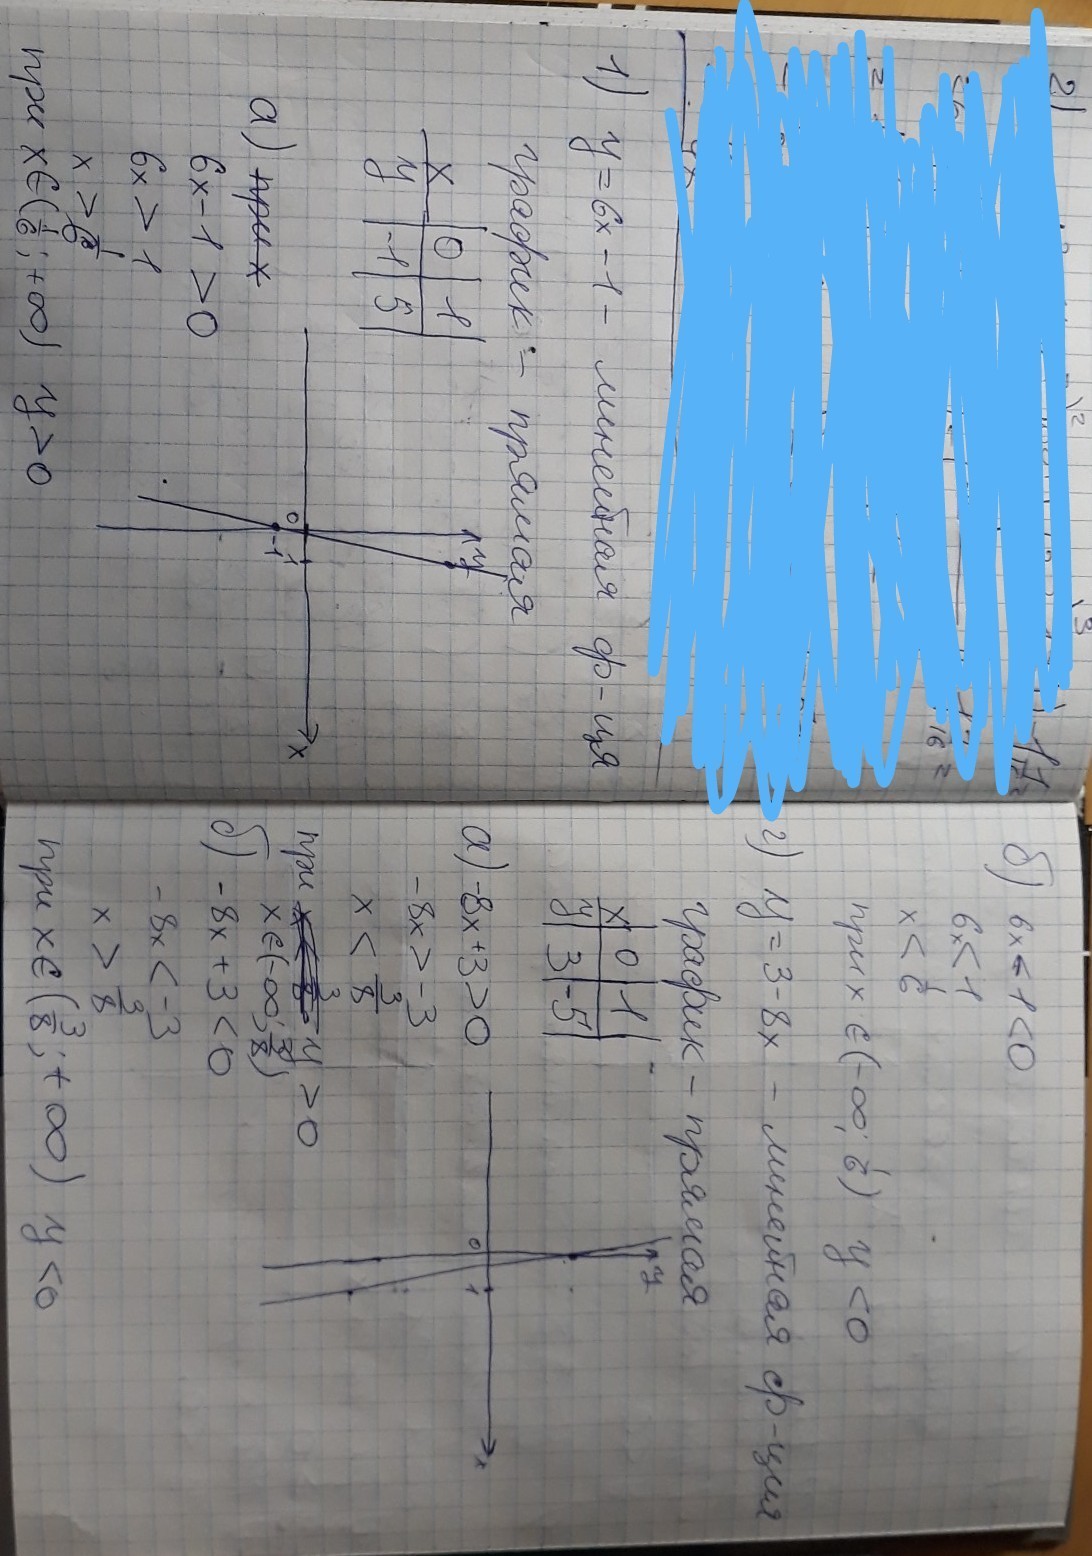 2)
16 =
1) y = 6x - 1 - линейная ф-ця
график - прямая
x | 0 | 1
y | -1 | 5
а) при х
6x - 1 > 0
6x > 1
x > 1/6
при x ∈ (1/6; +∞) y > 0
y
0
1
-1
x
б) 6x - 1 < 0
6x < 1
x < 1/6
при x ∈ (-∞; 1/6) y < 0
2) y = 3 - 8x - линейная ф-ция
график - прямая
x | 0 | 1
y | 3 | -5
а) -8x + 3 > 0
-8x > -3
x < 3/8
при y > 0
x ∈ (-∞; 3/8)
y
0
1
x
б) -8x + 3 < 0
-8x < -3
x > 3/8
при x ∈ (3/8; +∞) y < 0